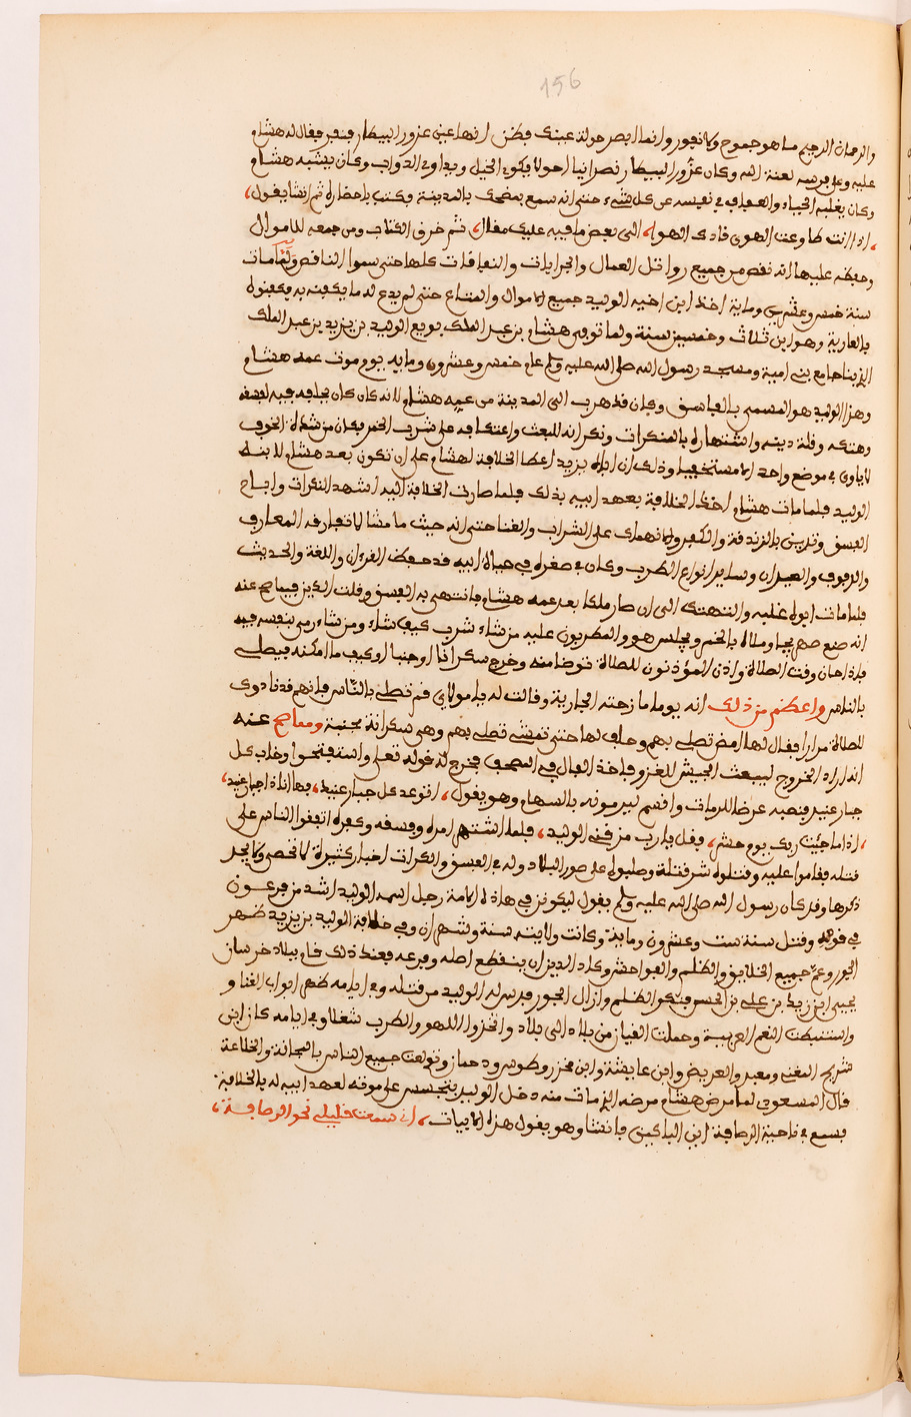 156
والرحمان الرحيم ما هو جموح ولا نفور وانما ابصر حولة عينك فظن انها عين عزور البيطار فنفر فقال له هشام
عليه وعلى فرسه لعنة الله وكان عزور البيطار نصرانيا احولا يكوي الخيل ويداوي الدواب وكان يشبه هشام
وكان يغلبه الحياء والعفاف في نفسه عن كل شيء حتى انه سمع بمضحك بالمدينة وكتب باحضاره ثم انشا يقول
اذا انت طاوعت الهوى قادك الهوا الى بعض ما فيه عليك مقال ثم خرق الكتاب ومن جمعه للاموال
وحفظه عليها انه نقص من جميع رواتل العمال والجرايات والنفاقات كلها حتى سموا الناقص ولما مات
سنة خمس وعشرين وماية اخذ ابن اخيه الوليد جميع الاموال والمتاع حتى لم يدع له ما يكفنه به فكفنوه
بالعارية وهو ابن ثلاث وخمسين سنة ولما توفي هشام بن عبد الملك بويع الوليد بن يزيد بن عبد الملك
الذي بنا جامع بني امية ومسجد رسول الله صلى الله عليه وسلم عام خمس وعشرون وماية يوم موت عمه هشام
وهذا الوليد هو المسمى بالفاسق وكان قد هرب الى المدينة من عمه هشام لانه كان كان يخافه فيه لفسقه
وهتكه وقلة دينه واشتهاره بالمنكرات ونكرانه للبعث واعتكافه على شرب الخمر فكان من شدة الخوف
لا ياوي في موضع واحد الا مستخفيا وذلك ان اباه يزيد اعطا الخلافة لهشام على ان تكون بعد هشام لابنه
الوليد فلما مات هشام اخذ الخلافة بعهد ابيه بذلك فلما صارت الخلافة اليه اشهد النكرات واباح
الفسق وتدين بالزندقة والكفر والانهماك على الشراب والغنا حتى انه حيث ما مشا لا تفارقه المعازف
والدفوف والعيدان وساير انواع الطرب وكان في صغره في حياة ابيه قد حفظ القرءان واللغة والحديث
فلما مات ابوه غلبه والتهتك الى ان صار ملكا بعد عمه هشام فانتهى به الفسق وقلت الدين فيما صح عنه
انه صنع صهريجا وملاه بالخمر ويجلس هو والمطربون عليه من شاء شرب كيف شاء ومن شاء رمى بنفسه فيه
فاذا حان وقت الصلاة واذن المؤذنون للصلاة توضا منه وخرج سكرانا او جنبا او كيف ما امكنه فيصلي
بالناس واعظم من ذلك انه يوما ما زحته الجارية وقالت له يا مولاي قم تصلي بالناس فانهم قد نادوك
للصلاة مرارا فقال لها امض تصلي بهم وحلف لها حتى تمشي تصلي بهم وهي سكرانة مجنبة ومما صح عنه
انه اراد الخروج ليبعث الجيش للغزو فاخذ الفال في المصحف فخرج له قوله تعلى واستفتحوا وخاب كل
جبار عنيد فنصبه عرضا للرمات واقسم ليرمونه بالسهام وهو يقول اتوعد كل جبار عنيد فها انا ذا جبار عنيد
اذا ما جيت ربك يوم حشر فقل يا رب مزقني الوليد فلما اشتهر امره وفسقه وكفره اتفقوا الناس على
قتله فقاموا عليه وقتلوه شر قتلة وصلبوه على صور البلاد وله في الفسق والكرات اخبار كثيرة لا تحصى ولا يحل
ذكرها وقد كان رسول الله صلى الله عليه وسلم يقول ليكونن في هاذه الامة رجل اسمه الوليد اشد من فرعون
في قومه وقتل سنة ست وعشرون وماية وكانت ولايته سنة وشهران وفي خلافة الوليد بن يزيد ظهر
الجور وعم جميع الخلايق والظلم والفواحش وكاد الدين ان ينقطع اصله وفرعه فعند ذلك قام ببلاد خرسان
يحيى ابن زيد بن علي بن الحسن فنكر الظلم وازال الجور فدس له الوليد من قتله وفي ايامه ظهر ابواب الغنا و
واستنبطت النغم الغريبة وحملت القيان من بلاد الى بلاد واتخذوا اللهو والطرب شغلا وفي ايامه كان ابن
شريح المغني ومعبد والغريض وابن عايشة وابن محرز وطوس ودحمان وتولعت جميع الناس بالمجانة والخلاعة
قال المسعودي لما مرض هشام مرضه الذي مات منه دخل الوليد يتجسس على موته لعهد ابيه له بالخلافة
فسمع في ناحية الرصافة انين الباكين فانشا وهو يقول هذه الابيات اني سمعت خليلي نحو الرصافة